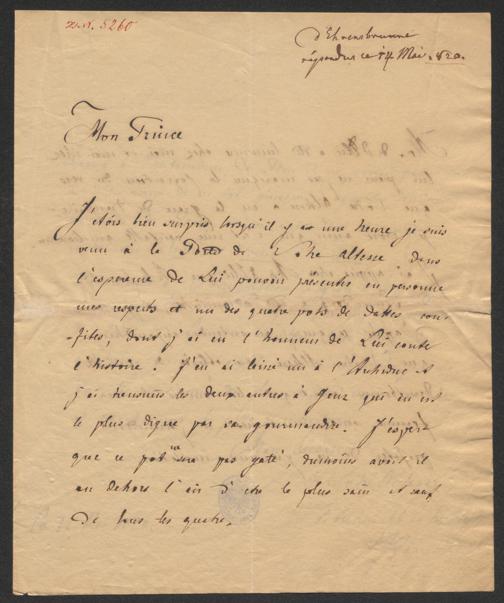 D. N. 5260
d'Ehrensbrunne
répondu ce 14 Mai 820.
Mon Prince
J'étois bien surpris lorsqu'il y a une heure je suis
venu à la Porte de Votre Altesse dans
l'esperance de Lui pouvoir presenter en personne
mes respects et un des quatre pots de dattes con-
-fites, dont j'ai eu l'honneur de Lui conte
l'histoire. J'en ai laissé un à l'Archiduc et
j'ai transmis les deux autres à Genz qui en est
le plus digne par sa gourmandise. J'espere
que ce pot ne sera pas gaté, dumoins avoit il
au dehors l'air d'etre le plus sain et sauf
de tous les quatre.